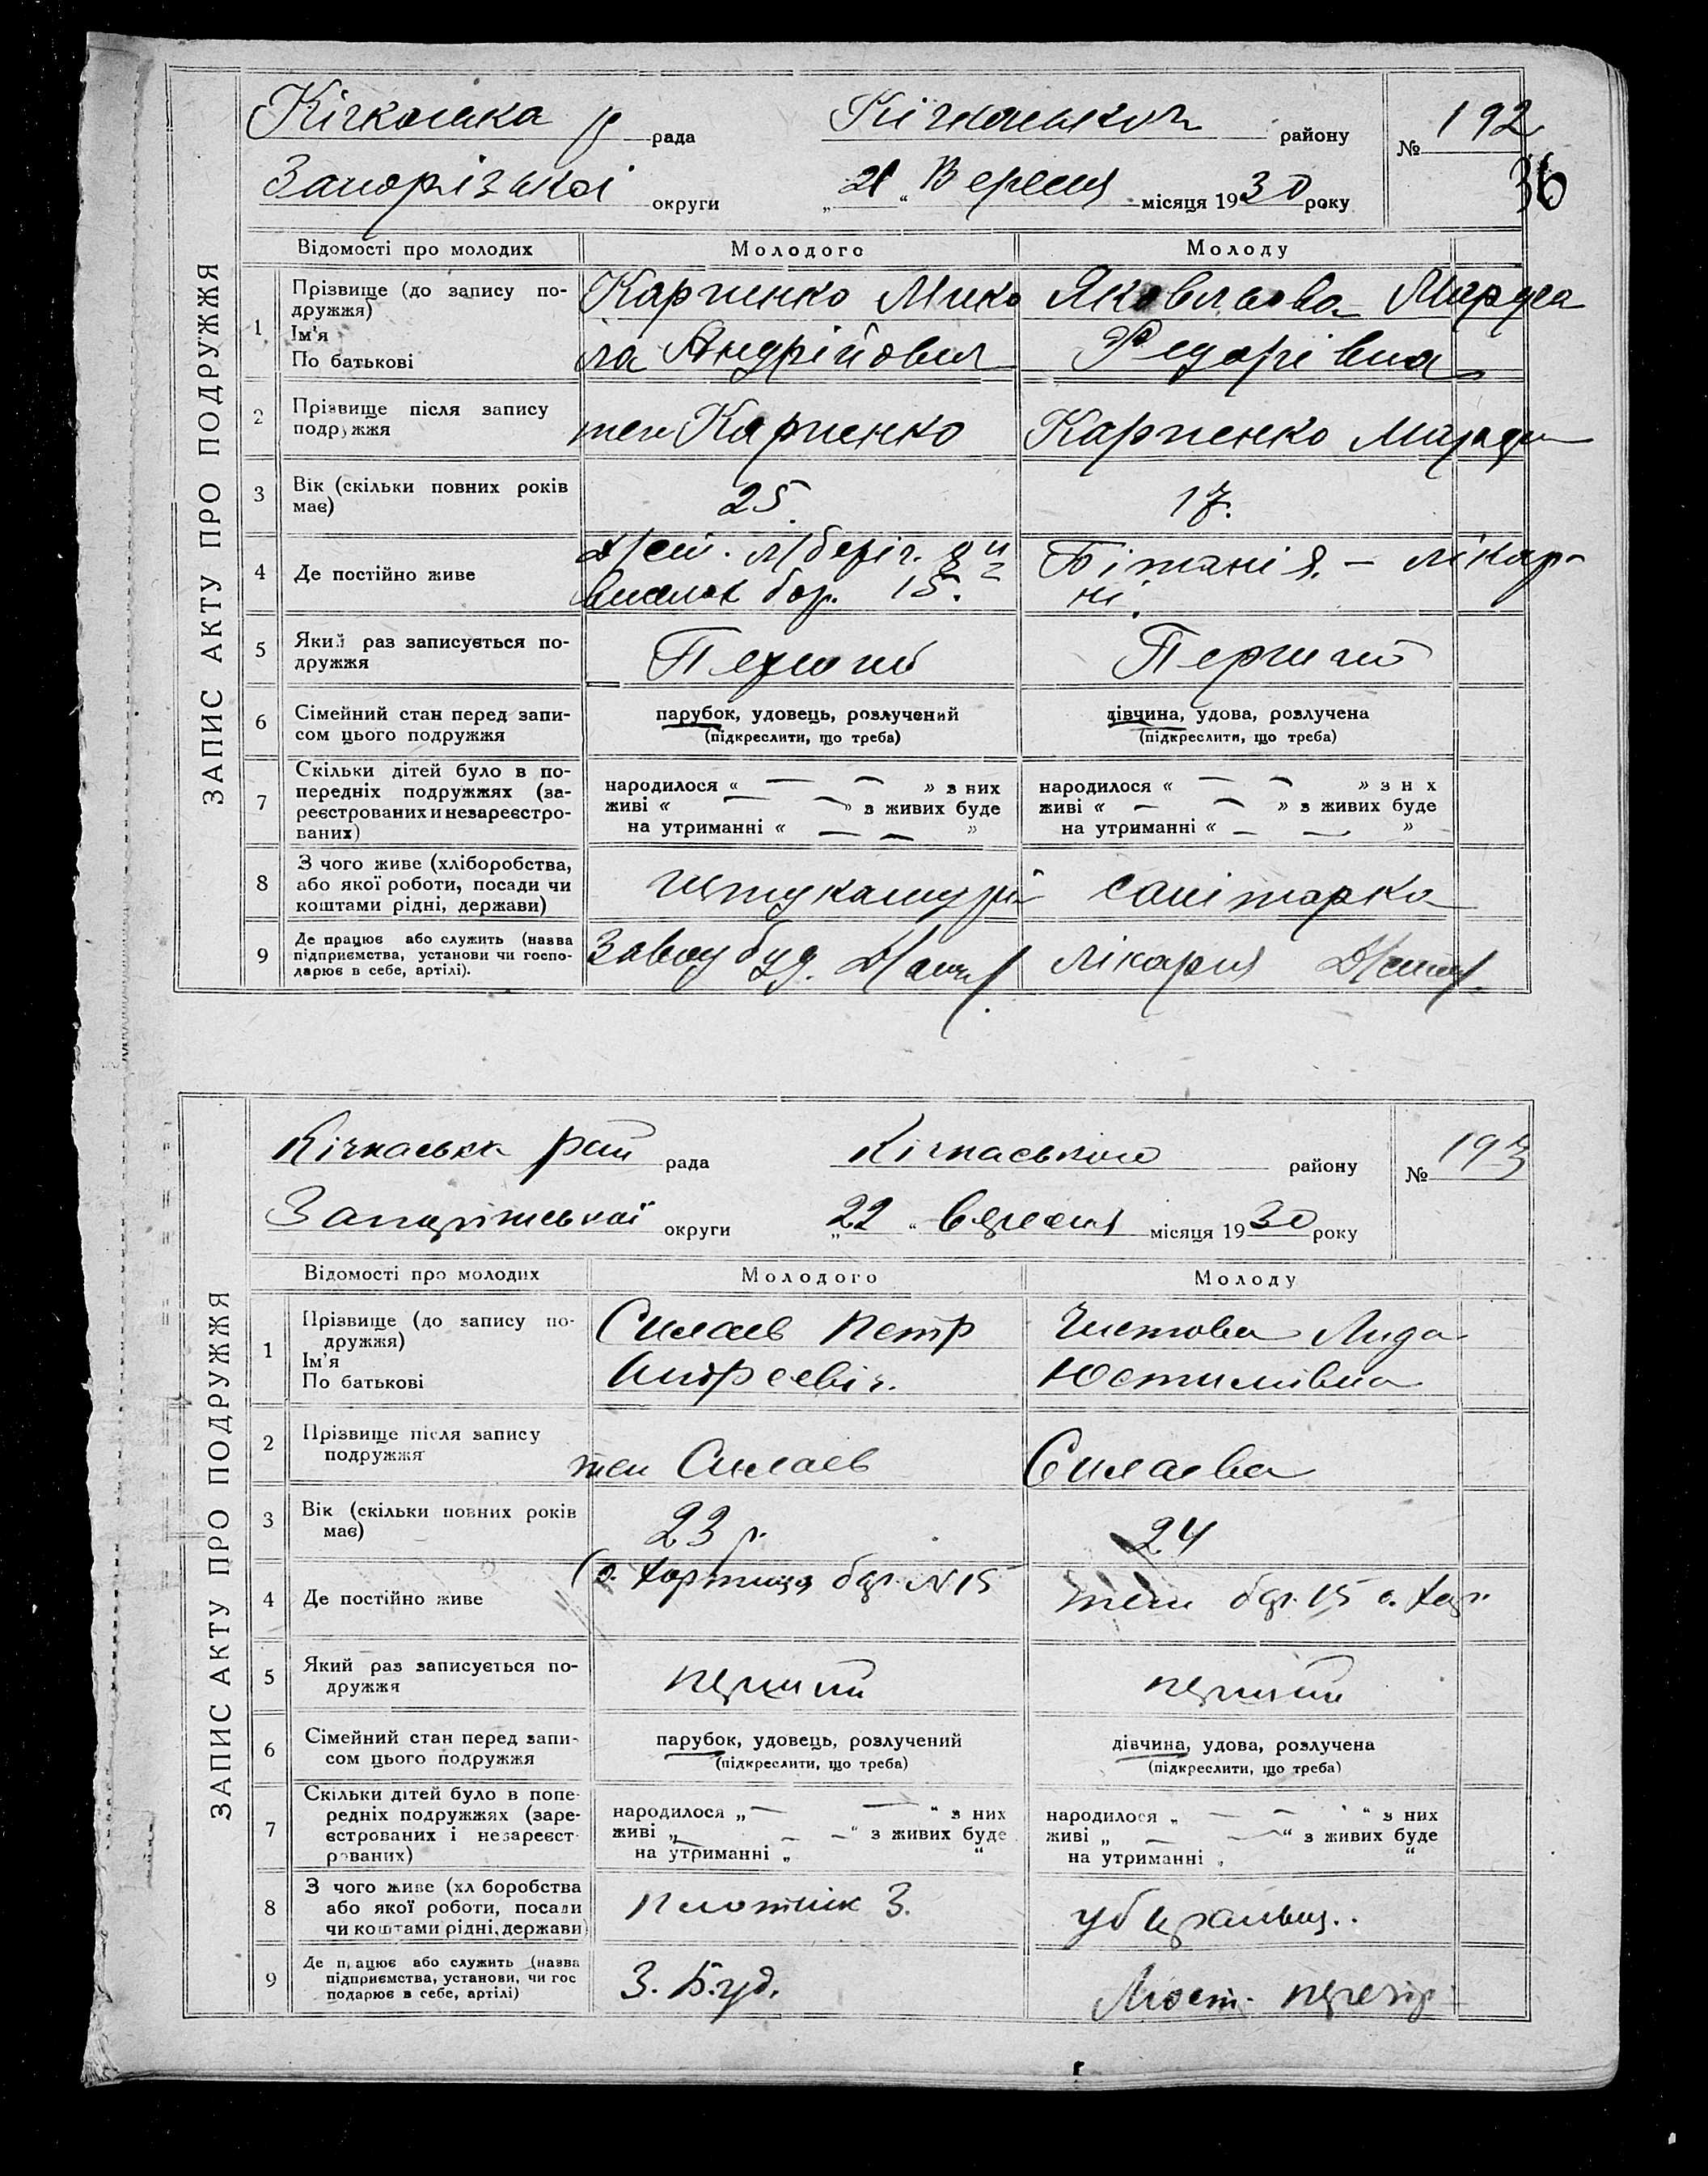 ЗАПИС АКТУ ПРО ПОДРУЖЖЯ
Кічкаська р рада Кічкаського району № 192
36
Запорізької округи „21“ Вересня місяця 1930 року
Відомості про молодих Молодого Молоду
1 Прізвище (до запису по-
дружжя)
Ім'я
По батькові
Карпенко Мико
ла Андрійович
Яковльова
Федорівна
2 Прізвище після запису
подружжя
теж Карпенко Карпенко
3 Вік (скільки повних років
має)
25. 17.
4 Де постійно живе
бар. 15.
Бітанія. – лікар-
ні.
5 Який раз записується по-
дружжя
Перший Перший
6 Сімейний стан перед запи-
сом цього подружжя
парубок, удовець, розлучений
(підкреслити, що треба)
дівчина, удова, розлучена
(підкреслити, що треба)
7 Скільки дітей було в по-
передніх подружжях (за-
реєстрованих и незареєстро-
ваних)
народилося « — — » з них
живі « — — » з живих буде
на утриманні « — — »
народилося « — — » з н х
живі « — — » з живих буде
на утриманні « — — »
8 З чого живе (хліборобства,
або якої роботи, посади чи
коштами рідні, держави)
штукатурій санітарка
9 Де працює або служить (назва
підприємства, установи чи госпо-
дарює в себе, артілі).
буд. лікарня
ЗАПИС АКТУ ПРО ПОДРУЖЖЯ
Кічкаська рай рада Кічкаського району № 193
округи „22“ вересня місяця 1930 року
Відомості про молодих Молодого Молоду
1 Прізвище (до запису по-
дружжя)
Ім'я
По батькові
Силаєв Петр
Андреевіч.
Чистова Лида
Юстимівна
2 Прізвище після запису
подружжя
теж Силаєв Силаєва
3 Вік (скільки повних років
має)
23 р. 24
4 Де постійно живе
о. Хортиця бар. N 15
теж бар. 15 о. Хор.
5 Який раз записується по-
дружжя
перший перший
6 Сімейний стан перед запи-
сом цього подружжя
парубок, удовець, розлучений
(підкреслити, що треба)
дівчина, удова, розлучена
(підкреслити, що треба)
7 Скільки дітей було в попе-
редніх подружжях (заре-
єстрованих і незареєст-
рованих)
народилося „ — — “ з них
живі „ — — “ з живих буде
на утриманні „ “
народилося „ — — “ з них
живі „ — — “ з живих буде
на утриманні „ “
8 З чого живе (хл боробства
або якої роботи, посади
чи коштами рідні, держави)
Плотнік З.
убиральщ..
9 Де працює або служить (назва
підприємства, установи, чи гос
подарює в себе, артілі)
З. Буд.
Мост. перехр